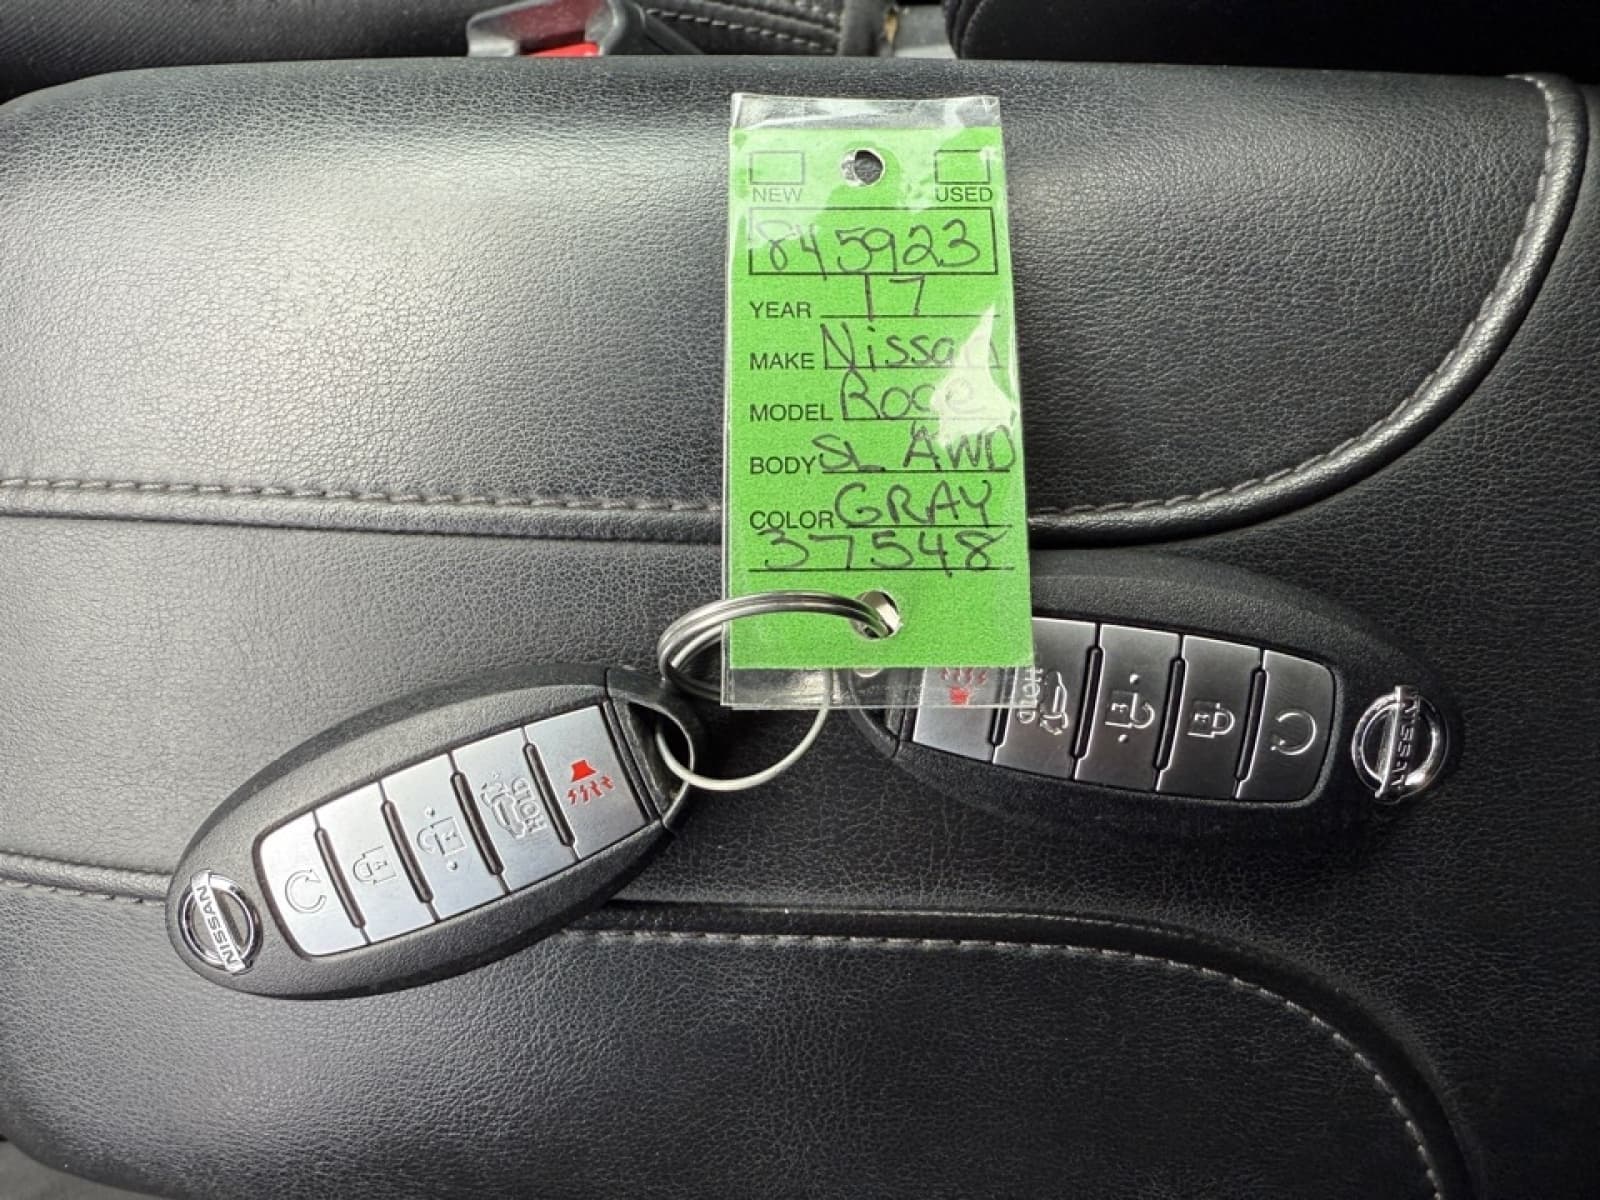 NEW USED
845923
YEAR 17
MAKE Nissan
MODEL Roge
BODY SL AWD
COLOR GRAY
37548
HOLD
NISSAN
HOLD
NISSAN